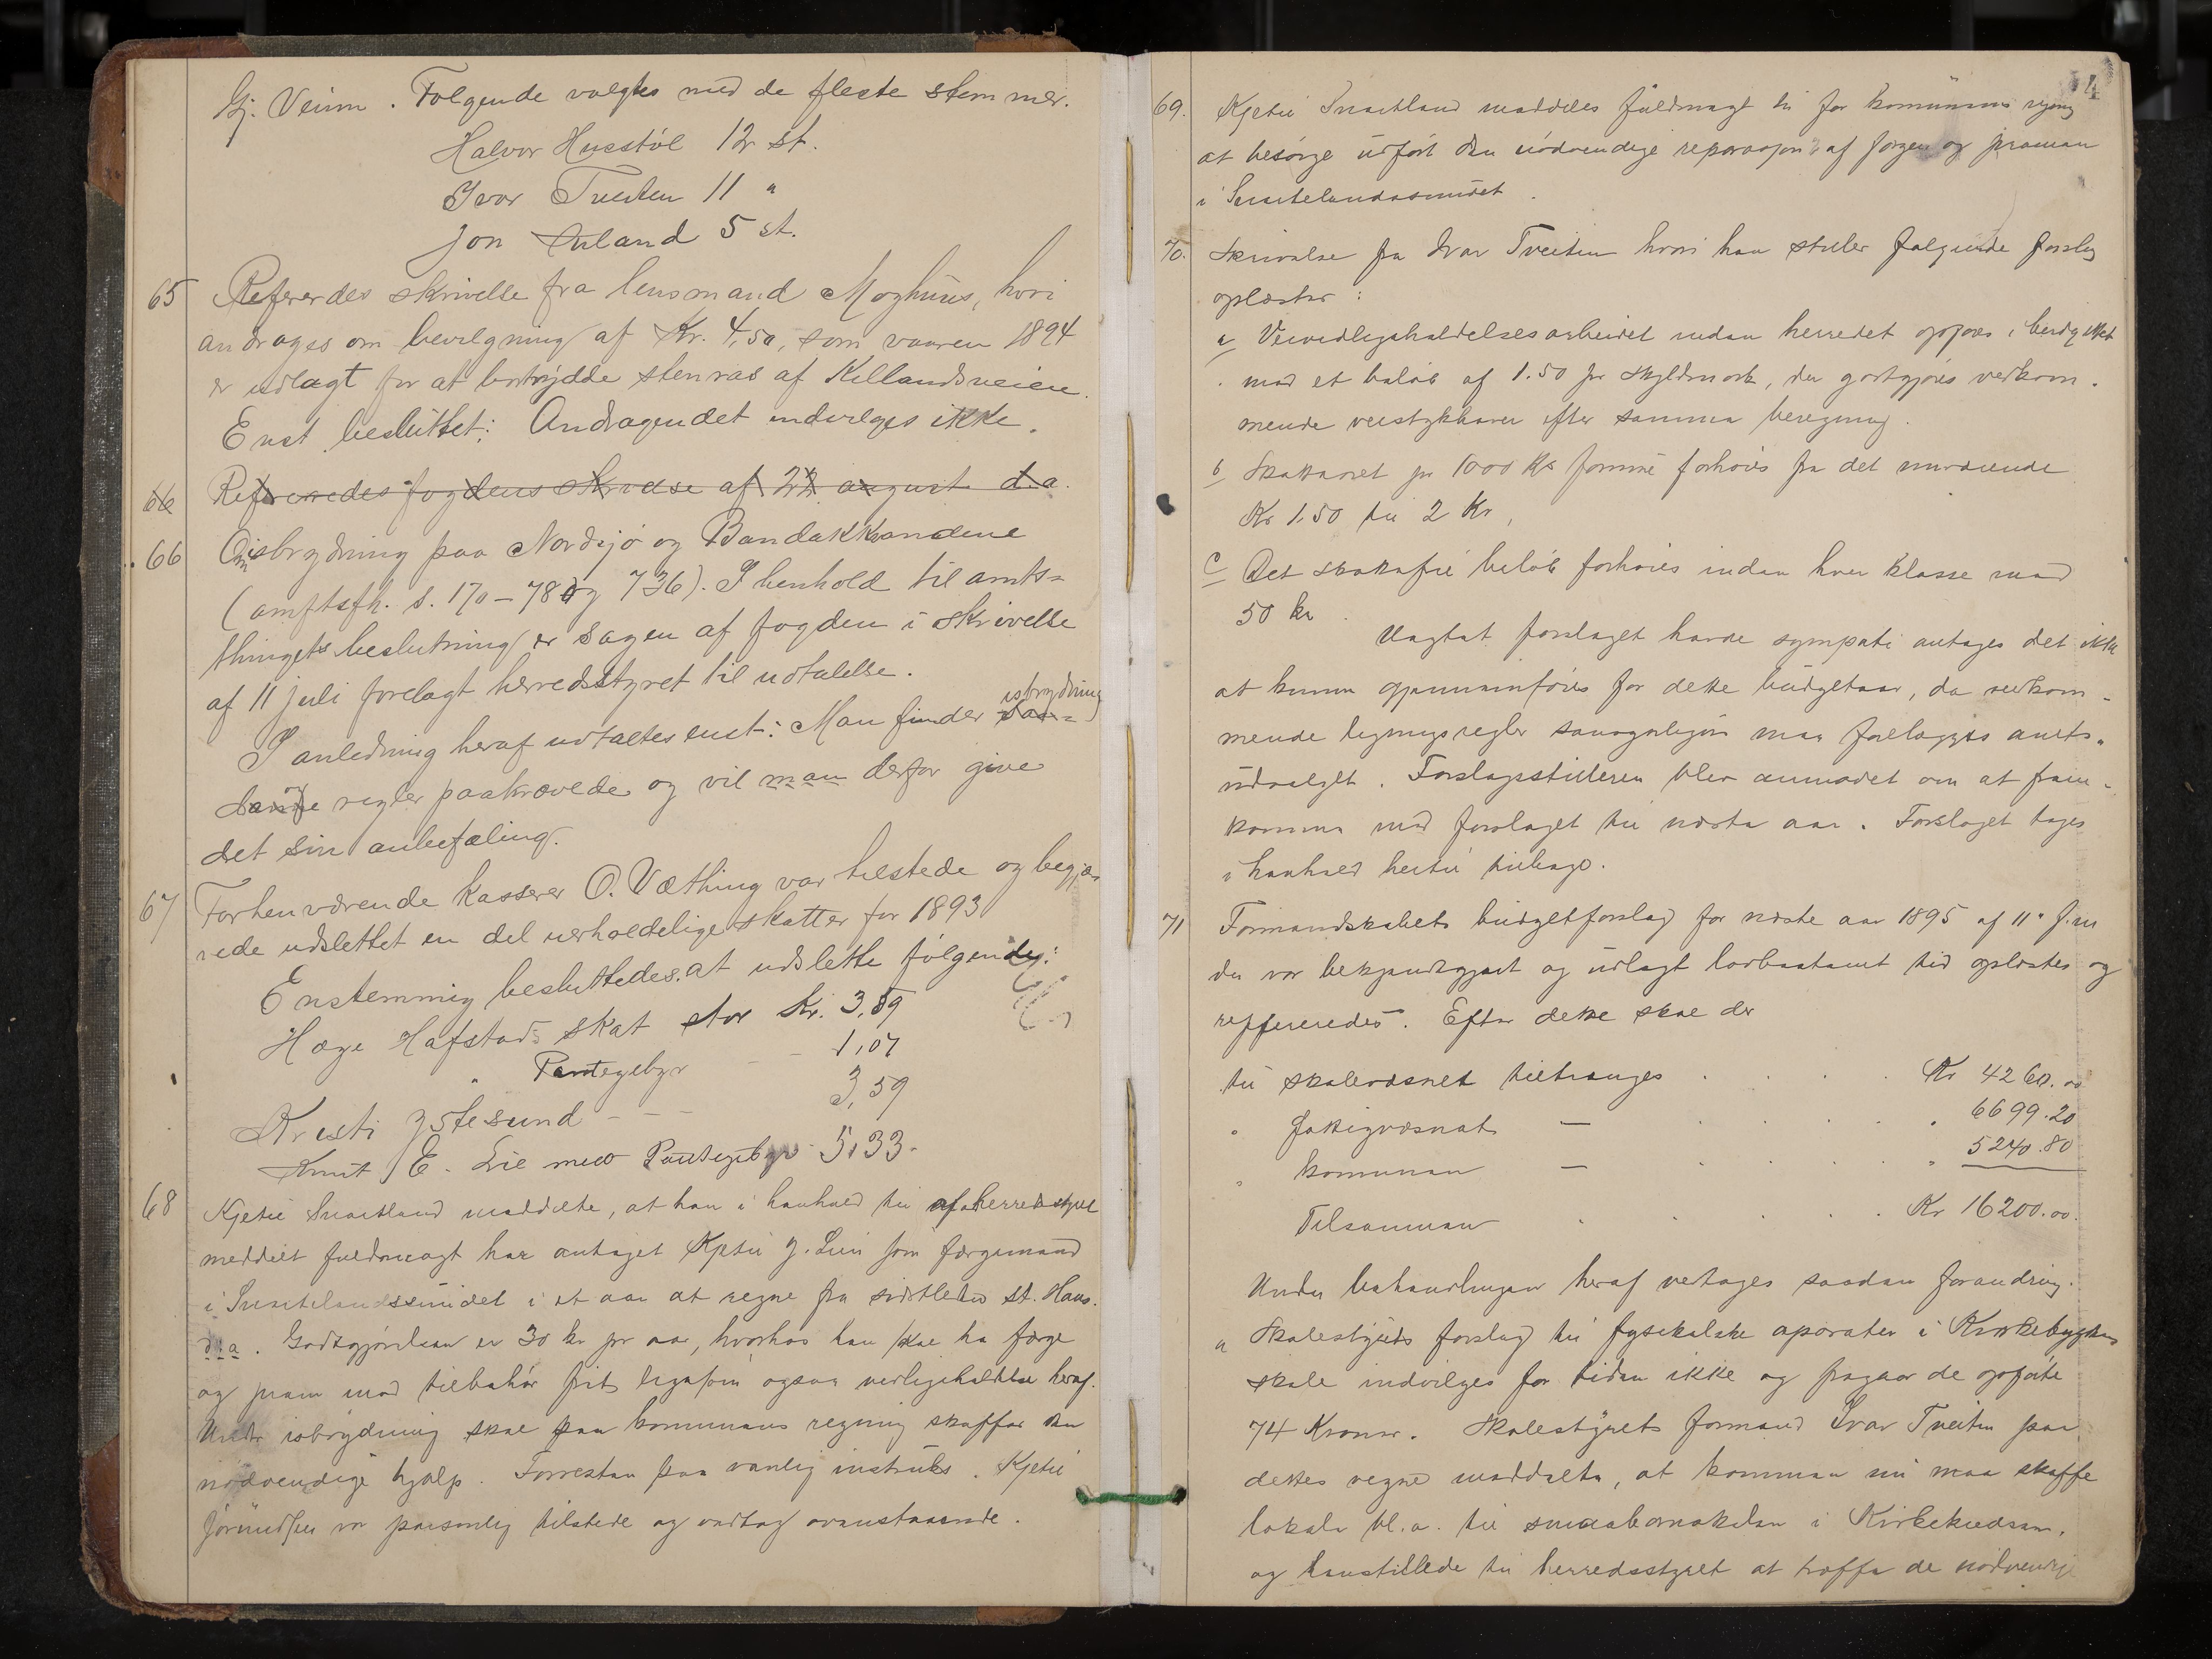 Gj. Veum. Følgende valgtes med de fleste stemmer.
Halvor Husstøl 12 st.
Ivar Tveiten 11 "
Jon 5 st.
65 Refererdes skrivelse fra lensmand Moghus, hvori
androges om bevilgning af Kr. 4,50, som vaaren 1894
er udlagt for at bortrydde stenras af Killandsveien.
Enst. besluttet: Andragendet indvilges ikke.
66 Refereredes fogdens skrivelse af 22 august d.a.
66 Om isbrydning paa Nordsjø og Bandakkanalene
(amtsfh. s. 170-78 og 736). I henhold til amts=
thingets beslutning er sagen af fogden i skrivelse
af 11 juli forelagt herredsstyret til udtalelse.
isbrydning
I anledning heraf udtaltes enst.: Man finder
regler paakrævede og vil man derfor give
det sin anbefaling.
67 Forhenværende kasserer O. Væthing var tilstede og begjæ-
rede udslettet en del uerholdelige skatter for 1893
Enstemmig besluttedes at udslette følgende:
Hæge Hafstad skat stor kr. 3,59
" Pantegebyr - - 1,07
Kristi Ystesund - - - 3,59
Knut E. Lie med Pantegebyr 5,33.
68 Kjetil Snartland meddelte, at han i henhold til af herredsstyret
meddelt fuldmagt har antaget Kjetil J. Lien som færgemand
i Snartelandssundet i et aar at regne fra sidstleden st. Hans.
d.a. Godtgjørelsen er 30 kr pr aar, hvorhos han skal ha færge
og pram med tilbehør frit ligesom ogsaa vedligeholdelse heraf.
Under isbrydning skal paa kommunens regning skaffes den
nødvendige hjælp. Forresten paa vanlig instruks. Kjetil
var personlig tilstede og vedtog ovenstaaende.
4
69. Kjetil Snartland meddeles fuldmagt til for kommunens regning
at besørge udført den nødvendige reparasjon af færgen og prammen
i Snartelandssundet.
70. Skrivelse fra Ivar Tveiten hvori han stiller følgende forslag
oplæstes:
a Veivedligeholdelsesarbeidet inden herredet opføres i budgettet
med et beløb af 1.50 pr skyldmark, der godtgjøres vedkom-
mende veistykkhaver efter samme beregning.
b Skattøret pr 1000 Kr formue forhøies fra det nuværende
Kr 1.50 til 2 Kr,
c Det skattefri beløb forhøies inden hver klasse med
50 kr.
Uagtet forslaget havde sympati antages det ikke
at kunne gjennemføres for dette budgetaar, da vedkom-
mende ligningsregler sandsynligvis maa forelægges amts-
udvalget. Forslagsstilleren blev anmodet om at frem-
komme med forslaget til næste aar. Forslaget tages
i henhold hertil tilbage.
71 Formandskabets budgetforslag for næste aar 1895 af 11te f.m
der var bekjendtgjort og udlagt lovbestemt tid oplæstes og
reffereredes. Efter dette skal der
til skolevæsnet tiltrænges . . . . Kr 4260.00
" fattigvæsnet — . . . . " 6699.20
" kommunen — . . . . " 5240.80
Tilsammen . . . . Kr 16200.00.
Under behandlingen heraf vedtages saadan forandring.
a Skolestyrets forslag til fysikalske aparater i Kirkebygdens
skole indvilges for tiden ikke og fragaar de opførte
74 Kroner. Skolestyrets formand Ivar Tveiten paa
dettes vegne meddelte, at kommunen nu maa skaffe
lokale bl.a. til smaabørnskolen i Kirkekredsen,
og henstillede til herredsstyret at træffe de nødvendige